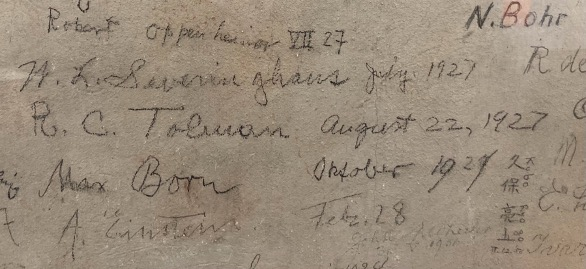 Robert Oppenheimer VII 27
N. Bohr
W. L. Severinghaus July 1927
R de
R. C. Tolman August 22, 1927
Max Born Oktober 1927
久保亮五
A. Einstein. Feb. 28